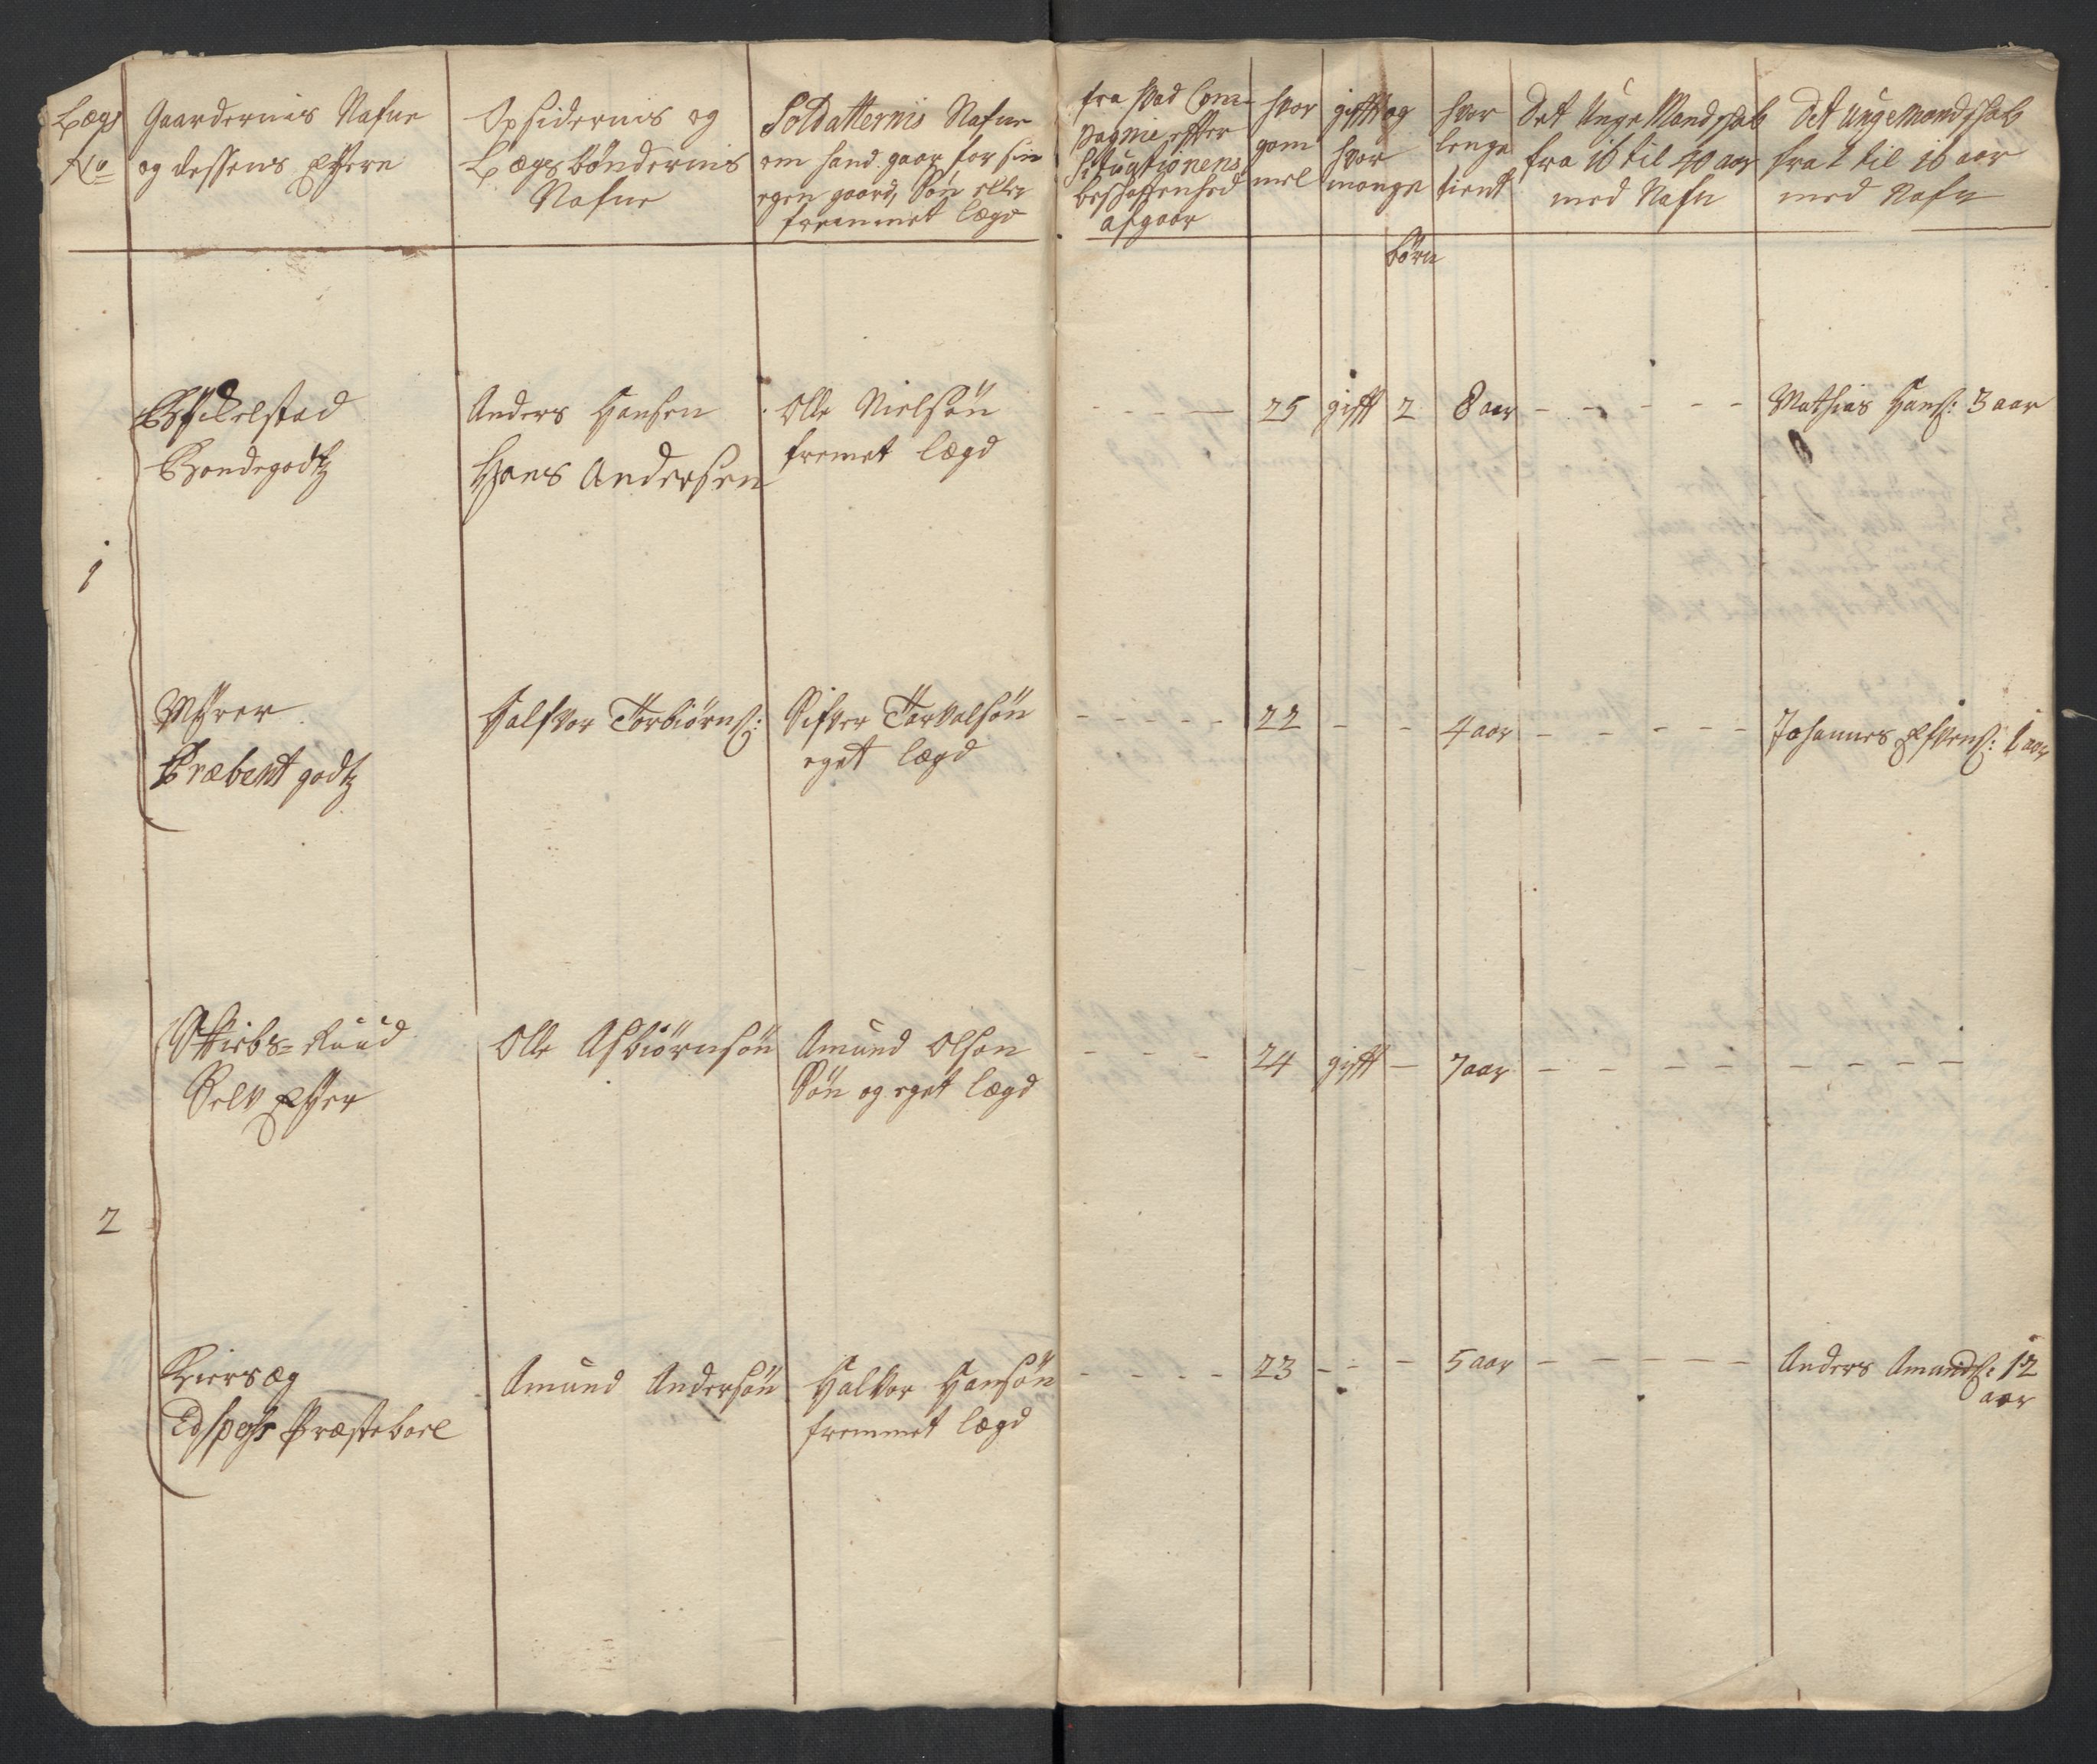 Lægs
No
Gaardernis Nafne
og dessens Eÿere
Opsidernis og
Lægsbøndernis
Nafne
Soldatternis Nafne
om hand gaar for sin
egen gaard, Søn eller
fremmet lægd
fra hvad Com-
pagnie effter
Situationens
beschaffenhed
afgaar
hvor
gam
mel
gifft og
hvor
mange
børn
hvor
lenge
tient
Det Unge Mandskab
fra 16 til 40 aar
med Nafn
Det unge Mandskab
fra 1 til 16 aar
med Nafn
1
Eskelstad
Bondegodtz
Anders Hansen
Hans Andersen
Olle Nielsøn
fremet lægd
- - - — 25 gifft 2 8 aar - - - - -
Mathias Hans: 3 aar
Myrer
Præbent godtz
Halfvor Torbiørns:
Sifver Torvalsøn
eget lægd
- - - - - 22 - - - 4 aar - - - - -
Johannes Efvens: 1 aar
2
Ruud
Selv Eÿer
Olle Asbiørnsøn
Amund Olsøn
Søn og eget lægd
- - - 24 gifft — 7 aar - - - - - - - - - -
Præsteboel
Amund Andersøn
Halvor Hansøn
fremmet lægd
- - - - 23 - - - 5 aar - - - - -
Anders Amunds: 12
aar